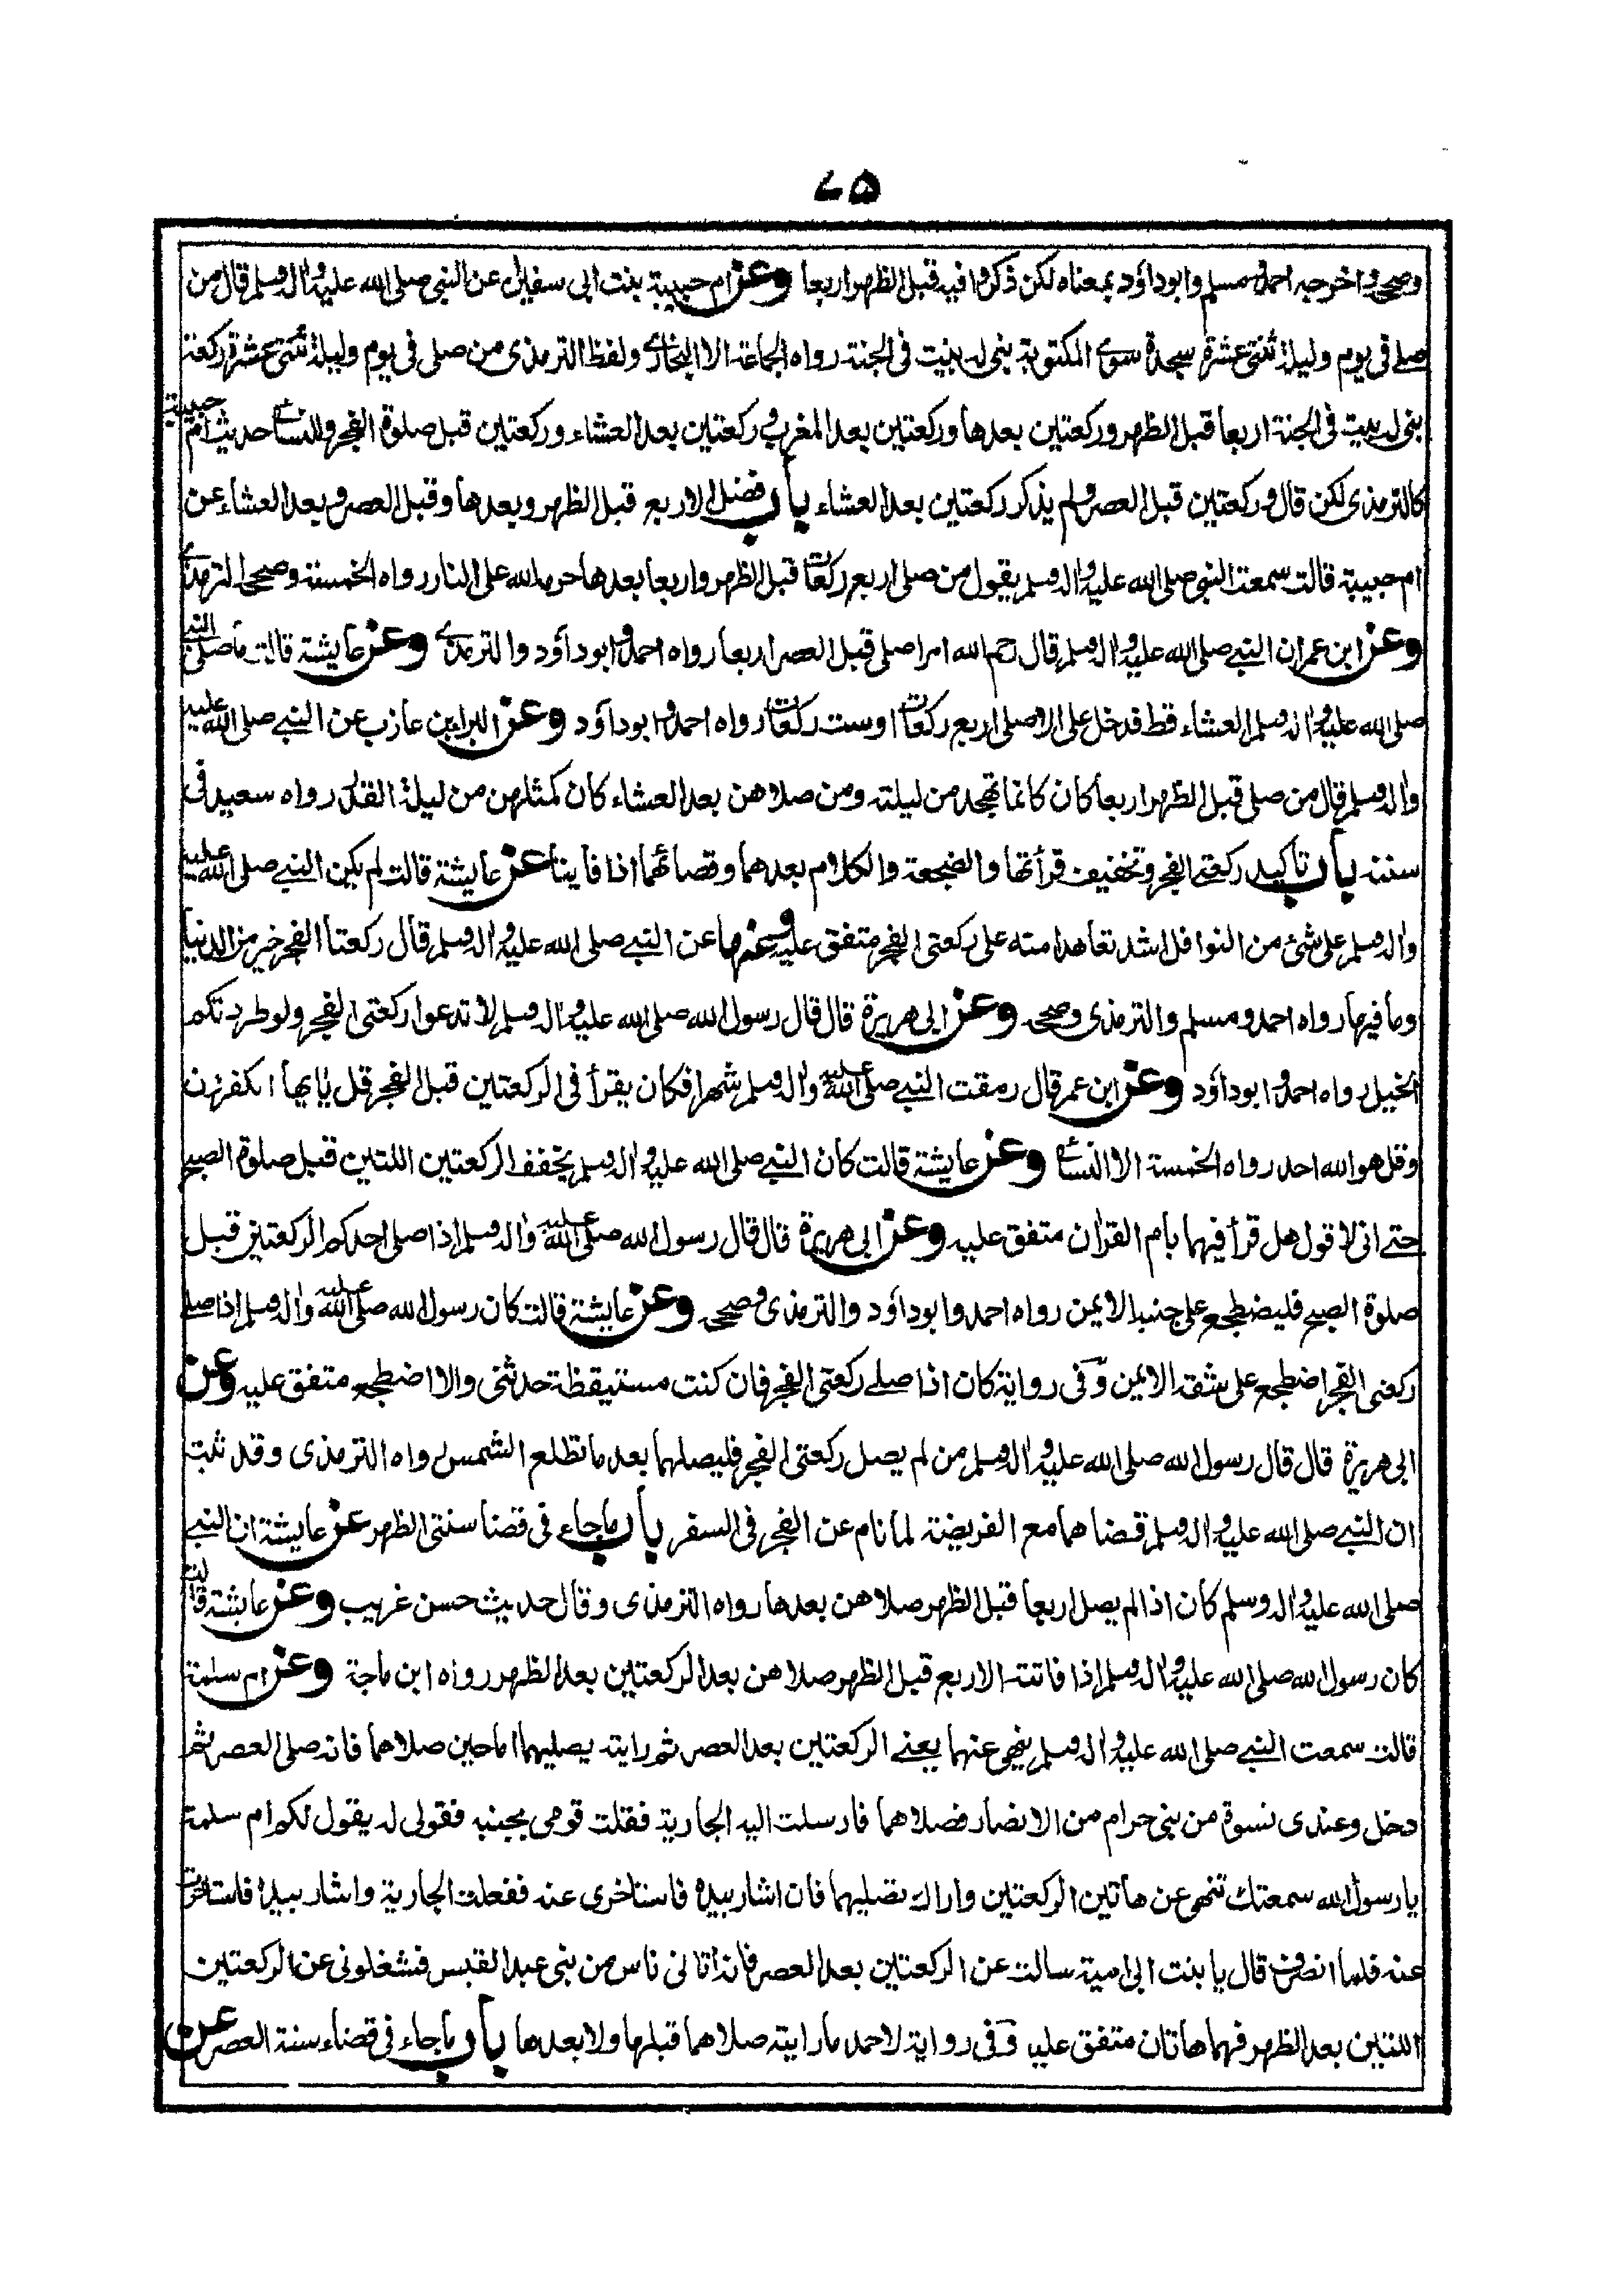 ٧٥
وصححه واخرجه احمد ومسلم وابوداؤد بمعناه لكن ذكروا فيه قبل الظهر اربعا وعن ام حبيبة بنت ابى سفيان عن النبى صلى الله عليه واله وسلم قال من
صلے فى يوم وليلة ثنتى عشرة سجدة سوى المكتوبة بنى له بيت فى الجنة رواه الجماعة الا البخارى ولفظ الترمذى من صلى فى يوم وليلة ثنتى عشرة ركعة
بنى له بيت فى الجنة اربعا قبل الظهر وركعتين بعدها وركعتين بعد المغرب وركعتين بعد العشاء وركعتين قبل صلوة الفجر وللنسائے حديث ام حبيبة
كالترمذى لكن قال وركعتين قبل العصر ولم يذكر ركعتين بعد العشاء باب فضل الاربع قبل الظهر وبعدها وقبل العصر وبعد العشاء عن
ام حبيبة قالت سمعت النبى صلى الله عليه واله وسلم يقول من صلى اربع ركعات قبل الظهر واربعا بعدها حرمه الله على النار رواه الخمسة وصححه الترمذى
وعن ابن عمر ان النبے صلى الله عليه واله وسلم قال رحم الله امرا صلى قبل العصر اربعا رواه احمد وابوداؤد والترمذى وعن عايشة قالت ما صلى النبے
صلى الله عليه واله وسلم العشاء قط فدخل على الا صلى اربع ركعات اوست ركعات رواه احمد وابوداؤد وعن البراء بن عازب عن النبے صلى الله عليه
واله وسلم قال من صلى قبل الظهر اربعا كان كانما تهجد من ليلته ومن صلاهن بعد العشاء كان كمثلهن من ليلة القدر رواه سعيد فى
سننه باب تاكيد ركعتى الفجر وتخفيف قرأتها والضجعة والكلام بعدهما وقضائهما اذا فاتتا عن عايشة قالت لم يكن النبے صلى الله عليه
واله وسلم على شئ من النوافل اشد تعاهدا منه على ركعتى الفجر متفق عليه وعنها عن النبے صلى الله عليه واله وسلم قال ركعتا الفجر خير من الدنيا
وما فيها رواه احمد ومسلم والترمذى وصححه وعن ابى هريرة قال قال رسول الله صلى الله عليه واله وسلم لا تدعوا ركعتى الفجر ولو طردتكم
الخيل رواه احمد وابوداؤد وعن ابن عمر قال رمقت النبے صلى الله عليه واله وسلم شهرا فكان يقرأ فى الركعتين قبل الفجر قل يايها الكفرون
وقل هو الله احد رواه الخمسة الا النسائے وعن عايشة قالت كان النبے صلى الله عليه واله وسلم يخفف الركعتين اللتين قبل صلوة الصبح
حتے انى لاقول هل قرأ فيهما بام القران متفق عليه وعن ابى هريرة قال قال رسول الله صلى الله عليه واله وسلم اذا صلى احدكم الركعتين قبل
صلوة الصبح فليضطجع على جنبه الايمن رواه احمد وابوداؤد والترمذى وصححه وعن عايشة قالت كان رسول الله صلى الله عليه واله وسلم اذا صلے
ركعتى الفجر اضطجع على شقه الايمن وفى رواية كان اذا صلے ركعتى الفجر فان كنت مستيقظة حدثنى والا اضطجع متفق عليه وعن
ابى هريرة قال قال رسول الله صلى الله عليه واله وسلم من لم يصل ركعتى الفجر فليصلهما بعد ما تطلع الشمس رواه الترمذى وقد ثبت
ان النبے صلى الله عليه واله وسلم قضاهما مع الفريضة لما نام عن الفجر فى السفر باب ماجاء فى قضا سنتى الظهر عن عايشة ان النبے
صلى الله عليه واله وسلم كان اذا لم يصل اربعا قبل الظهر صلاهن بعدها رواه الترمذى وقال حديث حسن غريب وعن عايشة قالت
كان رسول الله صلى الله عليه واله وسلم اذا فاتته الاربع قبل الظهر صلاهن بعد الركعتين بعد الظهر رواه ابن ماجة وعن ام سلمة
قالت سمعت النبے صلى الله عليه واله وسلم ينهى عنهما يعنے الركعتين بعد العصر ثم رايته يصليهما اما حين صلاهما فانه صلى العصر ثم
دخل وعندى نسوة من بنى حرام من الانصار فصلاهما فارسلت اليه الجارية فقلت قومى بجنبه فقولى له يقول لك ام سلمة
يا رسول الله سمعتك تنهى عن هاتين الركعتين واراك تصليهما فان اشار بيده فاستاخرى عنه ففعلت الجارية واشار بيده فاستاخرت
عنه فلما انصرف قال يا بنت ابى امية سالت عن الركعتين بعد العصر فانه اتانى ناس من بنى عبد القيس فشغلونى عن الركعتين
اللتين بعد الظهر فهما هاتان متفق عليه وفى رواية لاحمد مارايته صلاهما قبلها ولا بعدها باب ماجاء فى قضاء سنة العصر عن